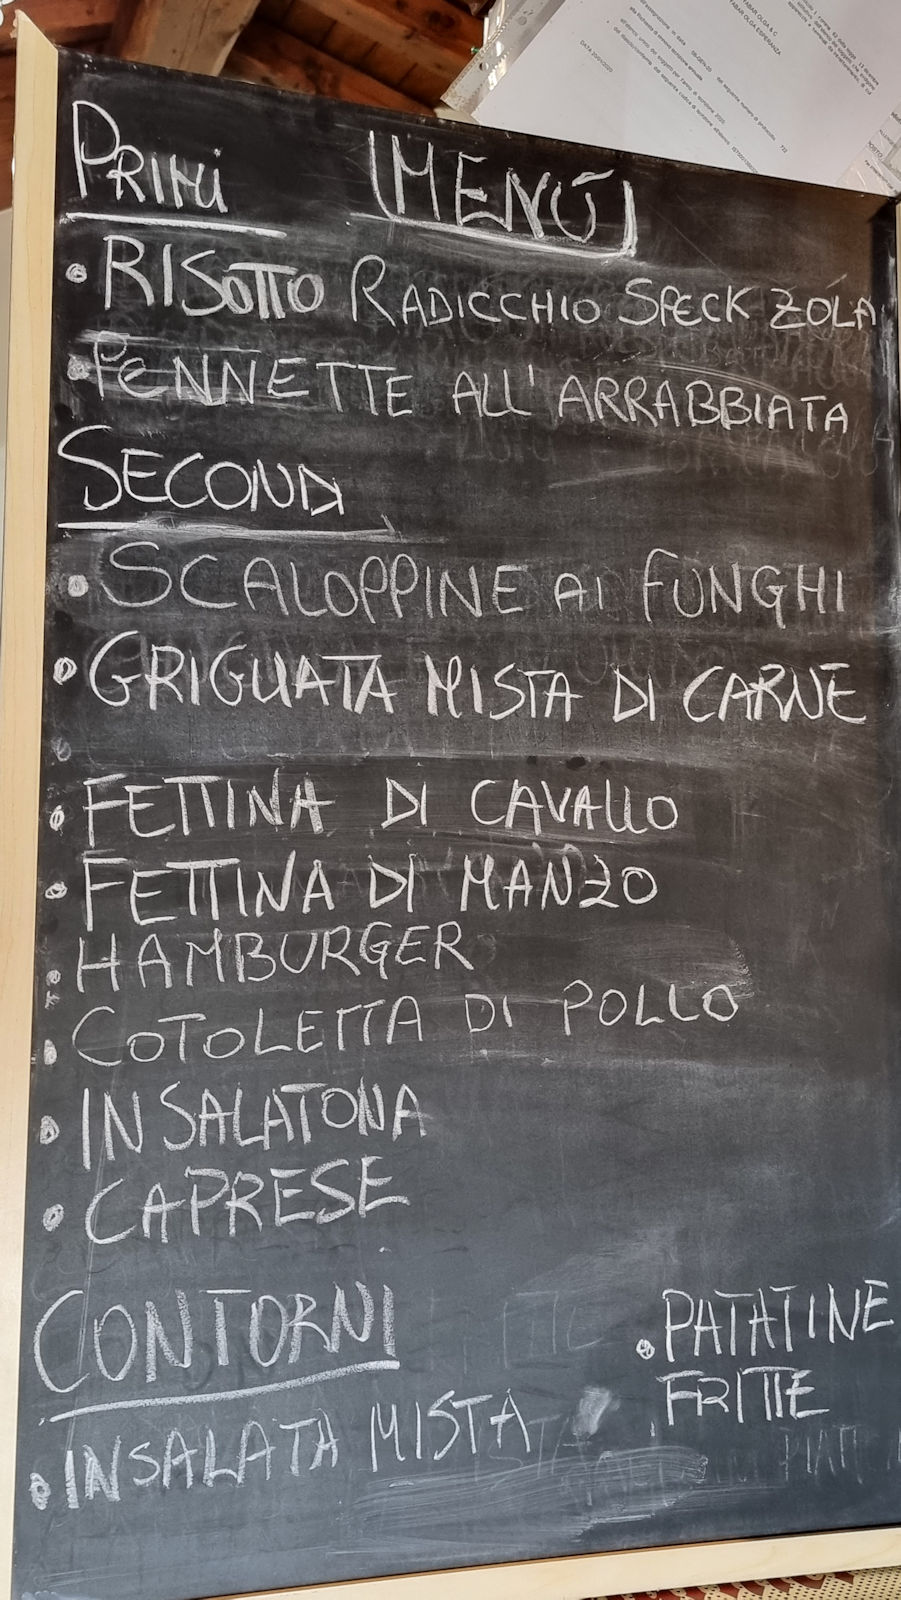 PRIMI
MENÙ
• RISOTTO RADICCHIO SPECK ZOLA
• PENNETTE ALL'ARRABBIATA
SECONDI
• SCALOPPINE AI FUNGHI
• GRIGLIATA MISTA DI CARNE
• FETTINA DI CAVALLO
• FETTINA DI MANZO
• HAMBURGER
• COTOLETTA DI POLLO
• INSALATONA
• CAPRESE
CONTORNI
• INSALATA MISTA
• PATATINE
FRITTE